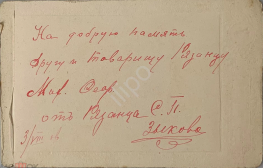 На добрую память
другу и товарищу Рязанцу
Мих.
отъ Рязанца С. П.
Зыкова